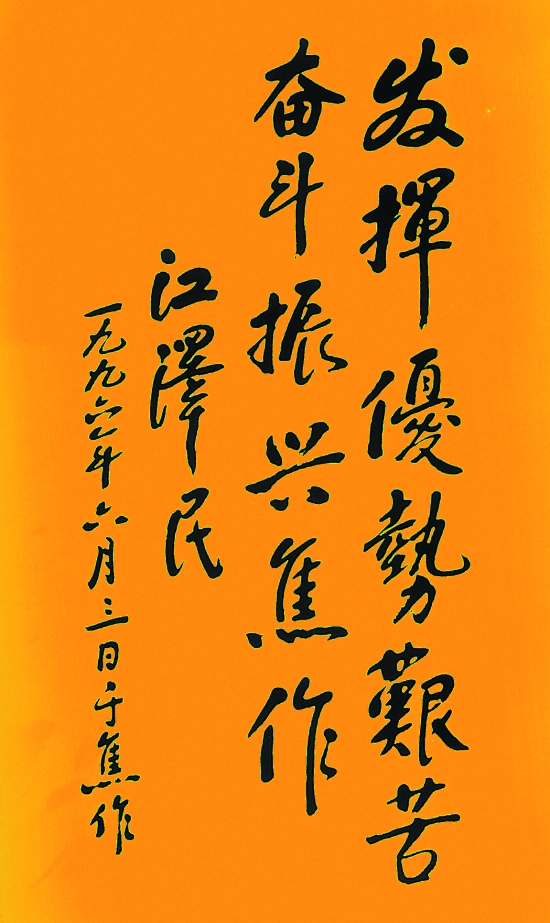 发揮優勢艱苦
奋斗振兴焦作
江澤民
一九九六年六月三日于焦作